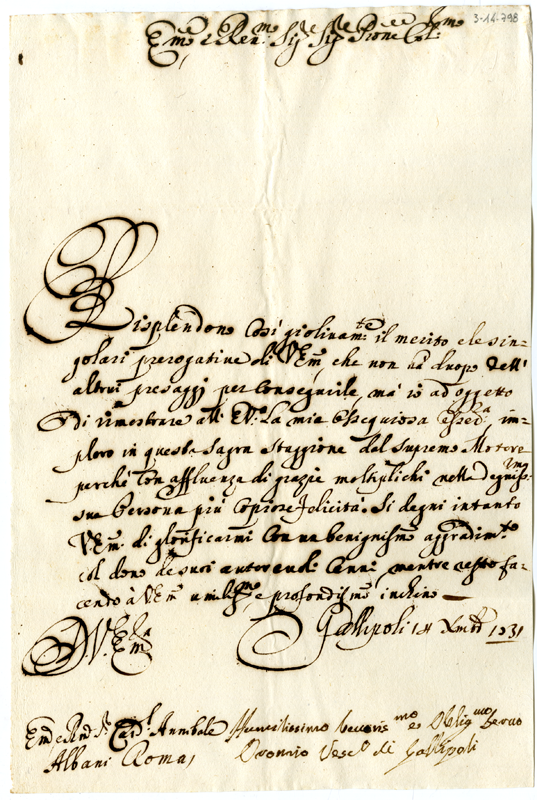 3-14-798
Em.o e Rev.mo Sig.re Sig.re P.rone Col.mo
Risplendono così giolivam.te il merito, e le sin-
golari prerogative di V. Em. che non hà d'uopo dell'
altrui presaggj per conseguirle, mà io ad oggetto
di rimostrare all' E.V. la mia ossequiosa im-
ploro in questa sagra staggione dal supremo Motore
perché con affluenza di grazie moltiplichi nella degnis.ma
sua Persona più copiose felicità. Si degni intanto
V. Em. di glorificarmi con un benignissmo aggradim.to
col dono de suoi autorevoli cenni, mentre resto fa-
cendo à V. Em. umiliss.mo e profondissmo inchino
D. V. Em.za Gallipoli 14 Xmbre 1731
Em. e Rev. Sig. Card.l Annibale Humilissimo Devotis.mo et Oblig.mo Servo
Albani Roma, Oronzio Vesc.o di Gallipoli